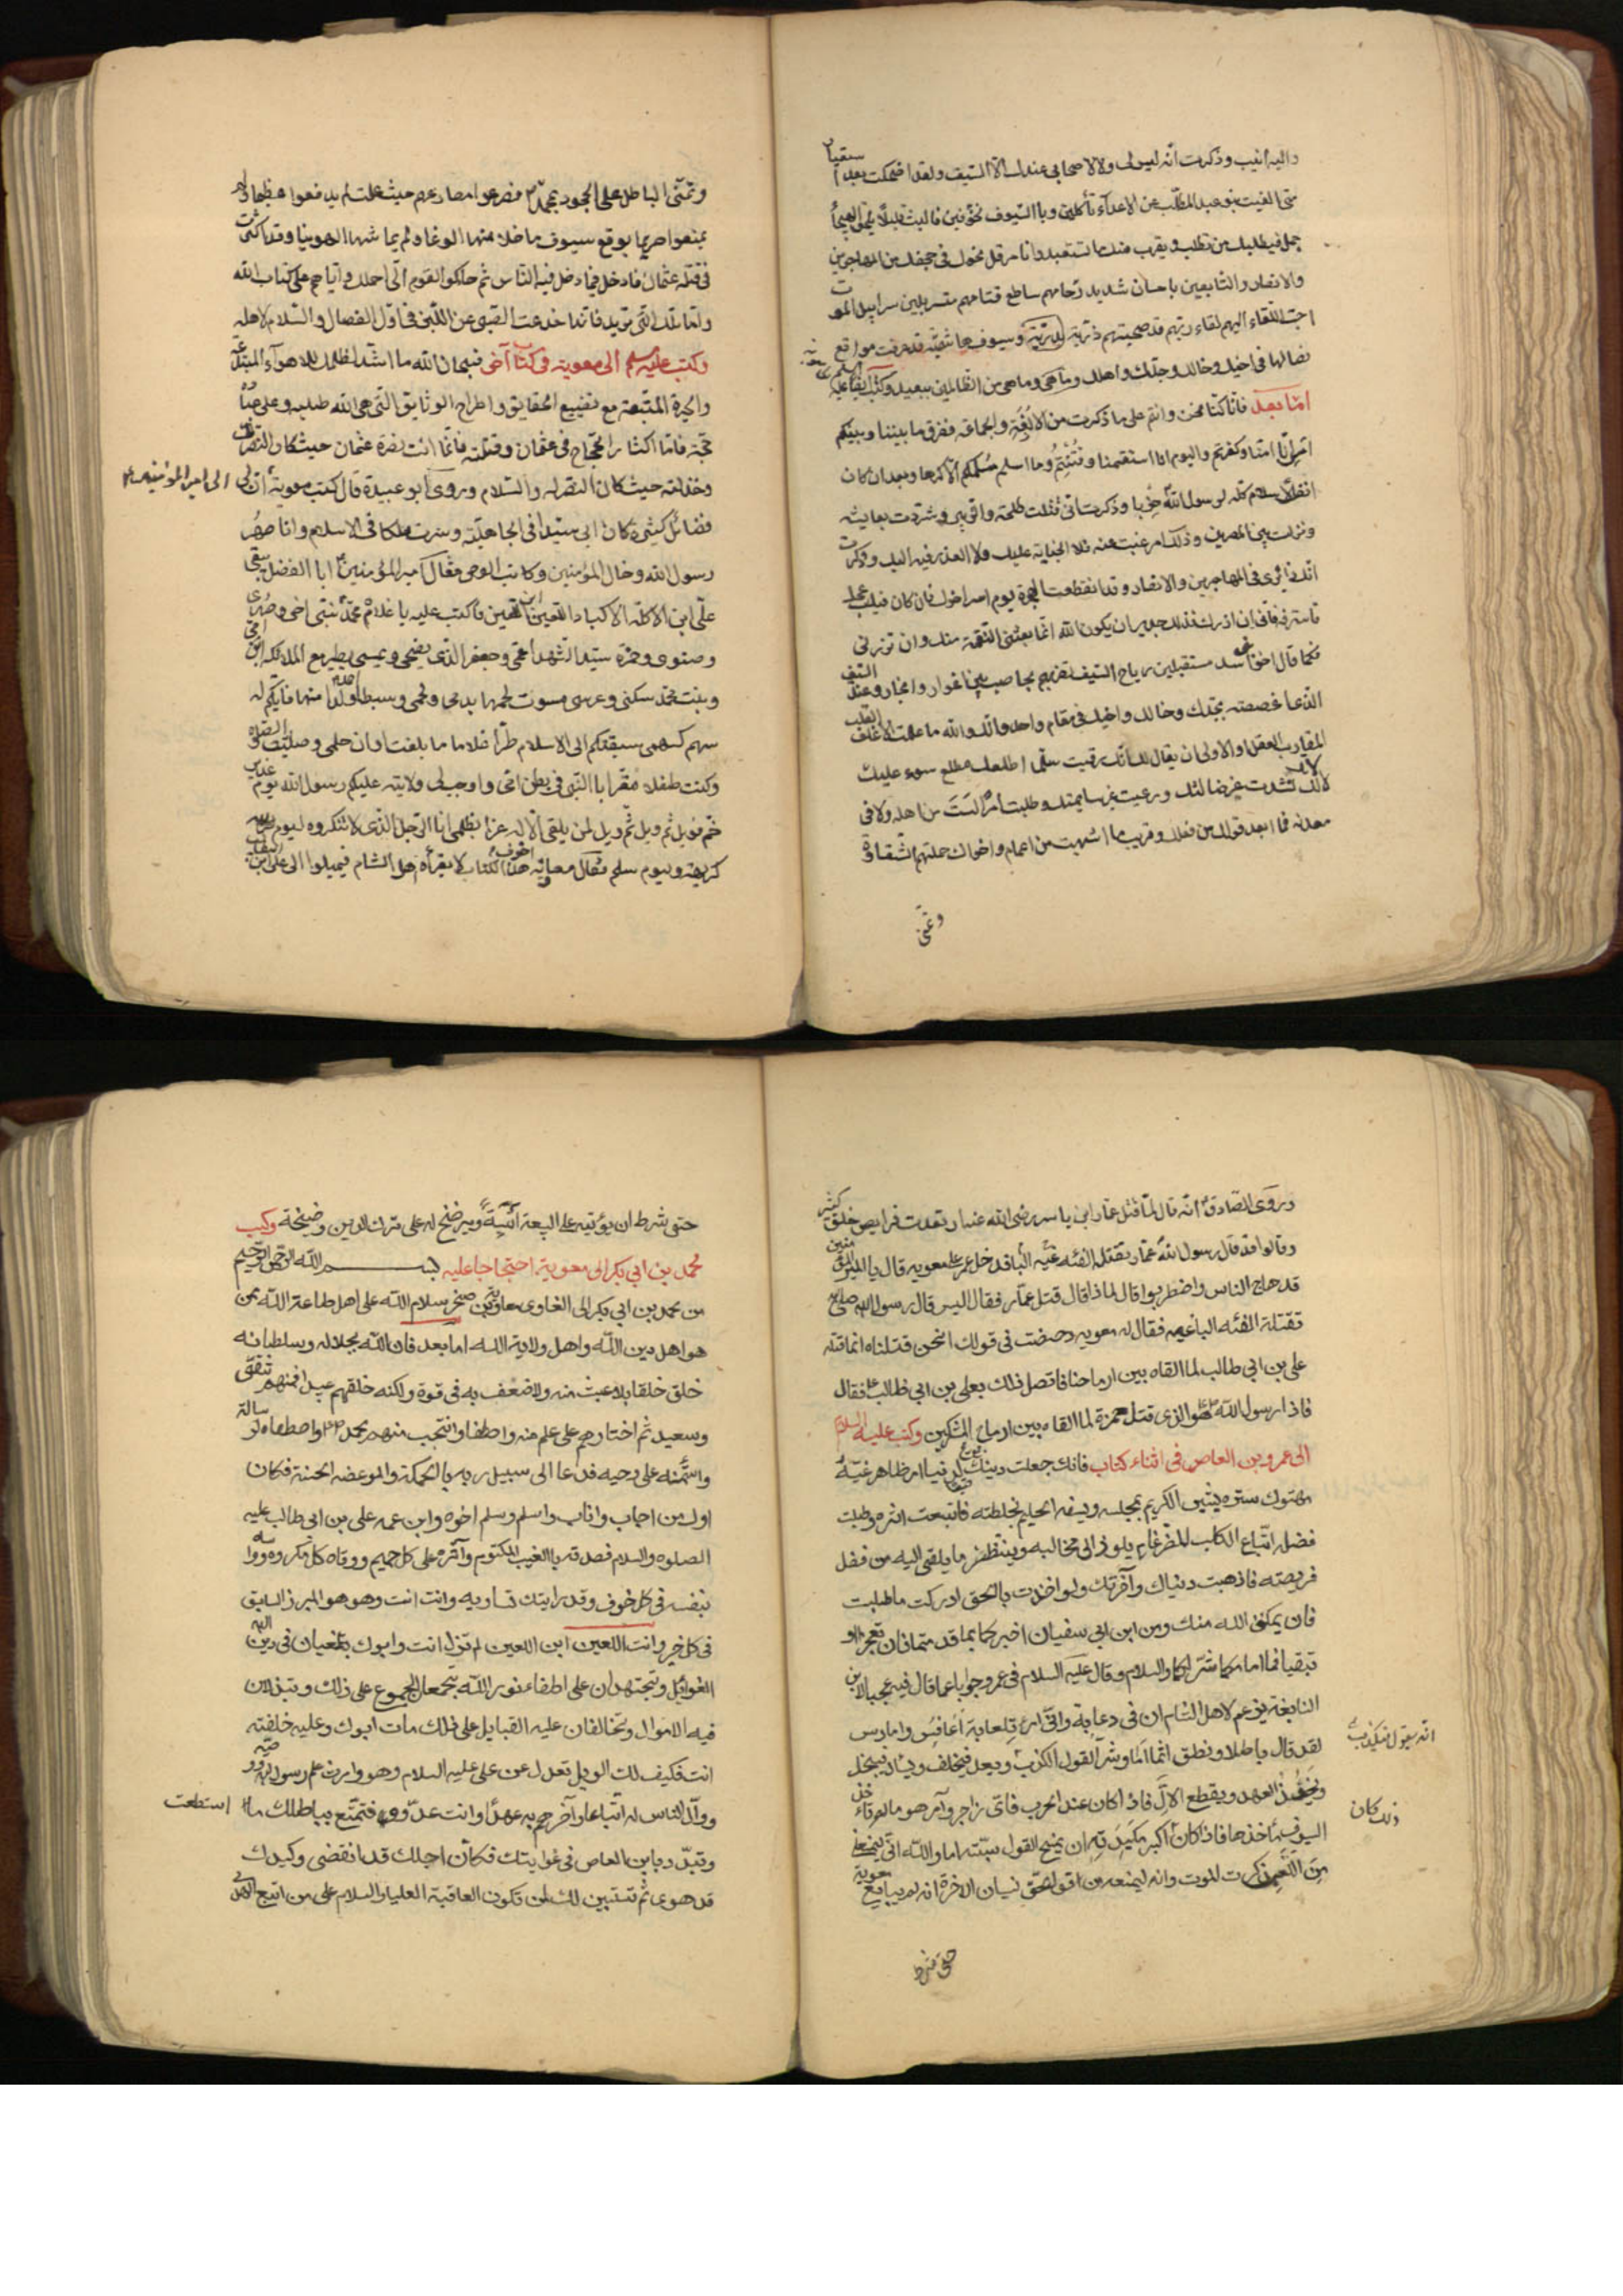 واليه انيب وذكرت انه ليس لى ولاصحابى عندك الا السيف ولقد اضحكت بعد استعبار
متى الفيت بنو عبد المطلب عن الاعداء ناكلين وبالسيوف مخوفين فالبث قليلا يلحق الهيجا
حمل فسيطلبك من تطلب ويقرب منك ما تستبعد وانا مرقل نحوك فى جحفل من المهاجرين
والانصار والتابعين باحسان شديد زحامهم ساطع قتامهم متسربلين سرابيل الموت
احب اللقاء اليهم لقاء ربهم قد صحبتهم ذرية بدرية وسيوف هاشمية قد عرفت مواقع
نصالها فى اخيك وخالك وجدك واهلك وما هى من الظالمين ببعيد وكتب ايضا عليه السلم
اما بعد فانا كنا نحن وانتم على ما ذكرت من الالفة والجماعة ففرق ما بيننا وبينكم
امس انا امنا وكفرتم واليوم انا استقمنا وفتنتم وما اسلم مسلمكم الا كرها وبعد ان كان
انف الاسلام كله لرسول الله حربا وذكرت انى قتلت طلحة والزبير وشردت بعايشة
ونزلت بين المصرين وذلك امر غبت عنه فلا الجناية عليك ولا العذر فيه اليك وذكرت
انك زائرى فى المهاجرين والانصار وقد انقطعت الهجرة يوم اسر اخوك فان كان فيك عجل
فاسترفه فانى ان ازرك فذلك جدير ان يكون الله انما بعثنى للنقمة منك وان تزرنى
فكما قال اخو بنى اسد مستقبلين رياح الصيف تضربهم بحاصب بين اغوار وانجاد وعندى السيف
الذى اعضضته بجدك وخالك واخيك فى مقام واحد وانك والله ما علمت الاغلف القلب
المقارب العقل والاولى ان يقال لك انك رقيت سلما اطلعك مطلع سوء عليك
لا لك لانك نشدت غير ضالتك ورعيت غير سايمتك وطلبت امرا لست من اهله ولا فى
معدنه فما ابعد قولك من فعلك وقريب ما اشبهت من اعمام واخوال حملتهم الشقاوة
وتمنى
وتمنى الباطل على الجحود بمحمد ص فصرعوا مصارعهم حيث علمت لم يدفعوا عظيما ولم
يمنعوا حريما بوقع سيوف ما خلا منها الوغا ولم يماشها الهوينا وقد اكثرت
فى قتلة عثمان فادخل فيما دخل فيه الناس ثم حاكموا القوم الى احملك واياهم على كتاب الله
واما تلك التى تريد فانها خدعة الصبى عن اللبن فى اول الفصال والسلام لاهله
وكتب عليه السلم الى معوية فى كتاب آخر فسبحان الله ما اشد لظلمك للاهواء المبتدعة
والحيرة المتبعة مع تضييع الحقايق واطراح الوثايق التى هى لله طلبه وعلى عباده
حجة فاما اكثارك الحجاج فى عثمان وقتلته فانما انت نصرة عثمان حيث كان النصر لك
وخذلته حيث كان النصر له والسلام وروى ابو عبيدة قال كتب معوية ان لى
الى امير المؤمنين ع
فضائل كثيرة كان ابى سيدا فى الجاهلية وصرت ملكا فى الاسلام وانا صهر
رسول الله وخال المؤمنين وكاتب الوحى فقال امير المؤمنين ع ابا الفضل يبغى
على ابن اكلة الاكباد اللعين ابن اللعين فاكتب عليه يا غلام محمد النبى اخى وصهرى
وصنوى وحمزة سيد الشهدا عمى وجعفر الذى يضحى ويمسى يطير مع الملائكة ابن امى
وبنت محمد سكنى وعرسى مسوط لحمها بدمى ولحمى وسبطا احمد ولداى منها فايكم له
سهم كسهمى سبقتكم الى الاسلام طرا غلاما ما بلغت اوان حلمى وصليت الصلوة
وكنت طفلا مقرا بالنبى فى بطن امى واوجب لى ولايته عليكم رسول الله يوم غدير
خم فويل ثم ويل ثم ويل لمن يلقى الاله غدا بظلمى انا الرجل الذى لا تنكروه ليوم
كريهة وليوم سلم فقال معاوية اخفوا هذا الكتاب لا يقرأه اهل الشام فيميلوا الى على ابن ابيطالب
وروى الصادق ع انه قال لما قتل عمار ابن ياسر رضى الله عنه ارتعدت فرايص خلق كثير
وقالوا قد قال رسول الله عمار تقتله الفئه الباغيه فدخل عمرو على معويه قال يا امير المؤمنين
قد هاج الناس واضطربوا قال لماذا قال قتل عمار فقال اليس قال رسول الله صلى
تقتله الفئه الباغيه فقال له معويه دحضت فى قولك انحن قتلناه انما قتله
على بن ابى طالب لما القاه بين ارماحنا فاتصل ذلك بعلى بن ابى طالب ع فقال
فاذا رسول الله ص هو الذى قتل حمزة لما القاه بين ارماح المشركين وكتب عليه السلام
الى عمرو بن العاص فى اثناء كتاب فانك جعلت دينك تبعا لدنيا امرء ظاهر غيه
مهتوك ستره يشين الكريم بمجلسه ويسفه الحليم بخلطته فاتبعت اثره وطلبت
فضله اتباع الكلب للضرغام يلوذ الى مخالبه وينتظر ما يلقى اليه من فضل
فريسته فاذهبت دنياك وآخرتك ولو اخذت بالحق ادركت ما طلبت
فان يمكنى الله منك ومن ابن ابى سفيان اجزكما بما قدمتما فان تعجزا و
تبقيا فما امامكما شر لكما والسلام وقال عليه السلام فى عمرو جوابا عما قال فيه عجبا لابن
النابغة يزعم لاهل الشام ان فى دعابة وانى امرؤ تلعابة اعافس وامارس
لقد قال باطلا ونطق آثما اما وشر القول الكذب ويعد فيخلف ويسال فيبخل
انه ليقول فيكذب
ويخون العهد ويقطع الال فاذا كان عند الحرب فاى زاجر وآمر هو ما لم تاخذ
السيوف مآخذها فاذا كان اكبر مكيدته ان يمنح القوم سبته اما والله انى ليمنعنى
ذلك كان
من اللعب ذكر الموت وانه ليمنعه من قول الحق نسيان الاخرة انه لم يبايع معوية
حتى شرط
حتى شرط ان يؤتيه على البيعة اتية ويرضخ له على ترك الدين رضيخة وكتب
محمد بن ابى بكر الى معوية احتجاجا عليه بسم الله الرحمن الرحيم
من محمد بن ابى بكر الى الغاوى معاوية بن صخر سلام الله على اهل طاعة الله ممن
هو اهل دين الله واهل ولاية الله اما بعد فان الله بجلاله وسلطانه
خلق خلقا بلا عبث منه ولا ضعف به فى قوة ولكنه خلقهم عبيدا فمنهم شقى
وسعيد ثم اختارهم على علم منه واصطفى وانتجب منهم محمد ص واصطفاه لرسالته
وائتمنه على وحيه فدعا الى سبيل ربه بالحكمة والموعضه الحسنة فكان
اول من اجاب واناب واسلم وسلم اخوه وابن عمه على بن ابى طالب عليه
الصلوه والسلام فصدقه بالغيب المكتوم وآثره على كل حميم ووقاه كل مكروه وواساه
بنفسه فى كل خوف وقد رايتك تساويه وانت انت وهو هو المبرز السابق
فى كل خير وانت اللعين ابن اللعين لم تزل انت وابوك تبغيان فى دين الله
الغوائل وتجتهدان على اطفاء نور الله تجمعان الجموع على ذلك وتبذلان
فيه الاموال وتخالفان عليه القبايل على ذلك مات ابوك وعليه خلفته
انت فكيف لك الويل تعدل عن على عليه السلام وهو وارث علم رسول الله ووصيه
واول الناس له اتباعا وآخرهم به عهدا وانت عدوه فتمتع بباطلك ما استطعت
وتبدد بابن العاص فى غوايتك فكأن اجلك قد انقضى وكيدك
قد هوى ثم تستبين لك لمن تكون العاقبة العليا والسلام على من اتبع الهدى